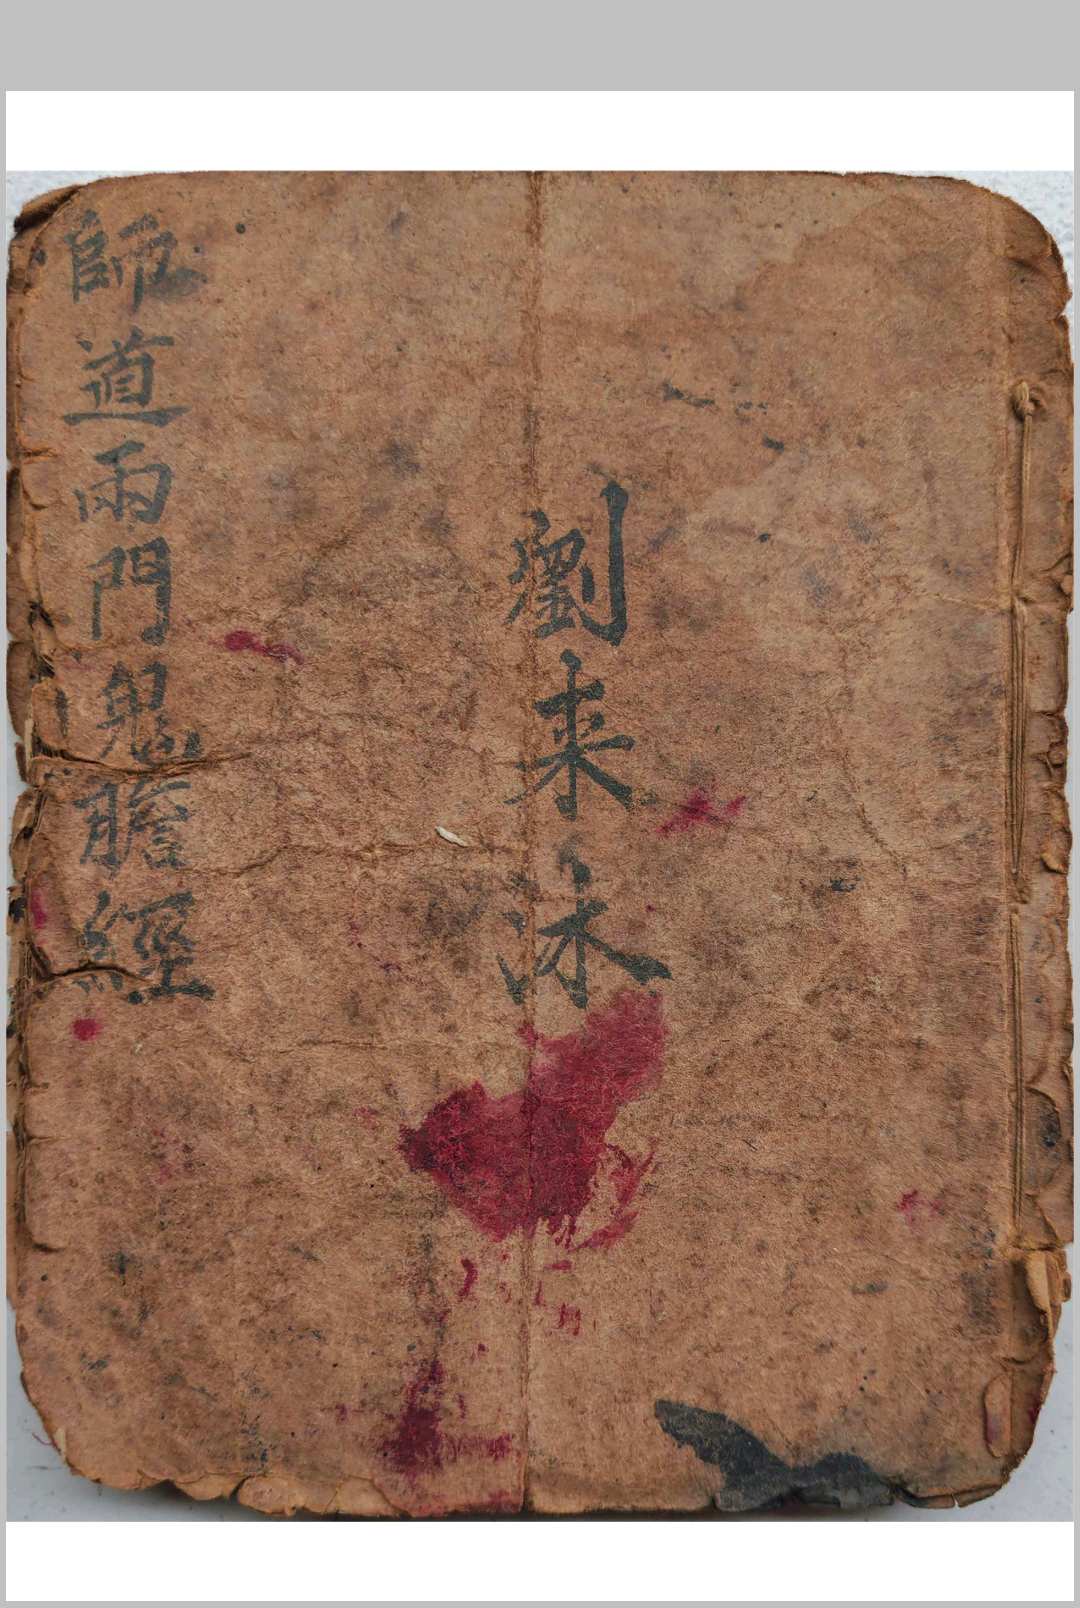 師道兩門鬼瞻經
劉来泳